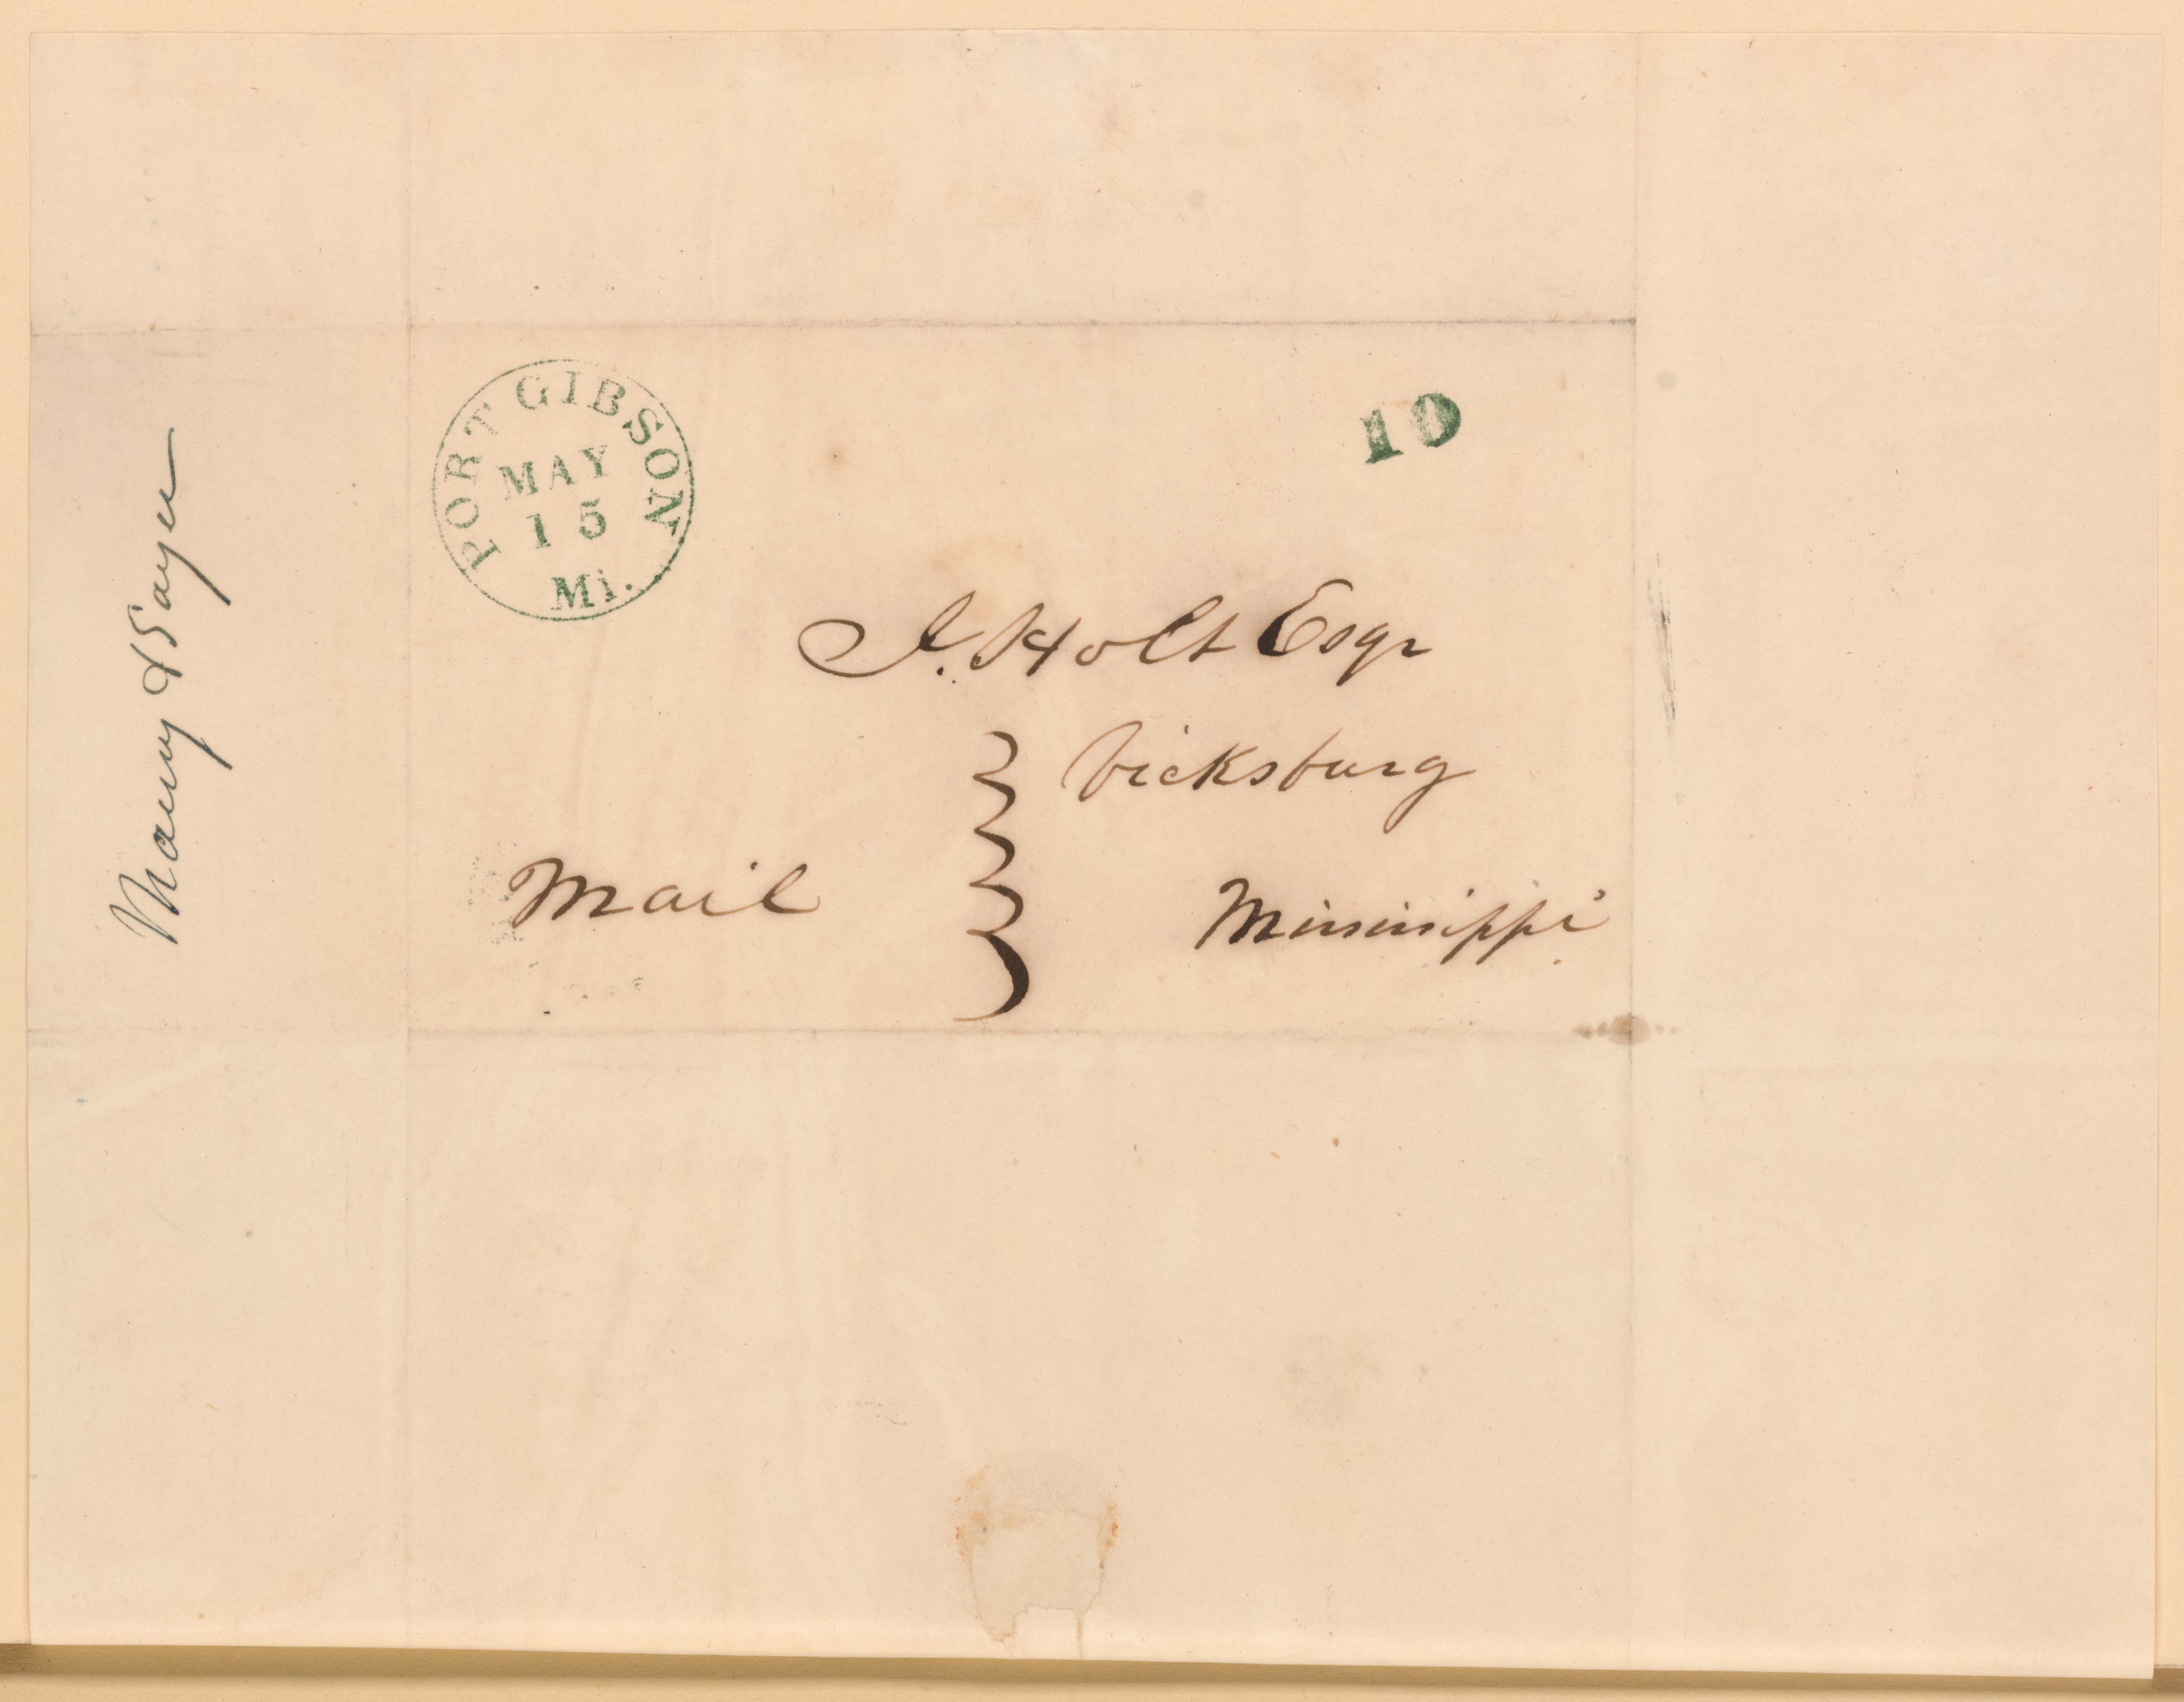 PORT GIBSON
MAY
15
Mi.
10
J. Holt Esqr
Vicksburg
Mail
Mississippi
&